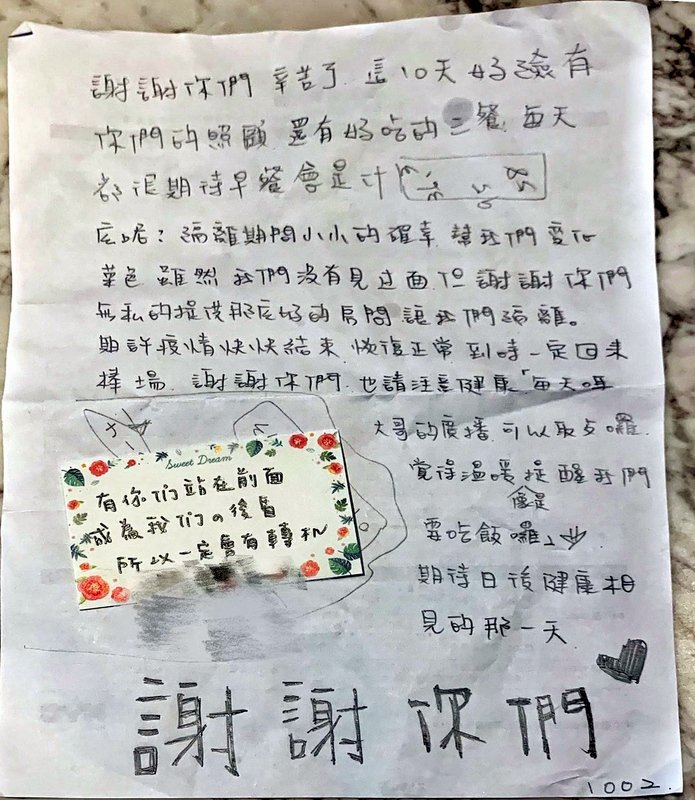 謝謝你們 辛苦了 這10天好險有
你們的照顧 還有好吃的三餐 每天
都很期待早餐會是什
底呢? 隔離期間小小的確幸 幫我們變化
菜色 雖然我們沒有見过面 但謝謝你們
無私的提茂那底好的房間讓我們隔離。
期許疫情快快結束 恢復正常 到時一定回來
捧場 謝謝你們 也請注意健康「每天
大哥的廣播 可以取歺囉
覺得溫暖提醒我們
像是
要吃飯囉」
期待日後健康相
見的那一天
Sweet Dream
有你们站在前面
成為我们の後盾
所以一定會有轉机
謝謝你們
1002.